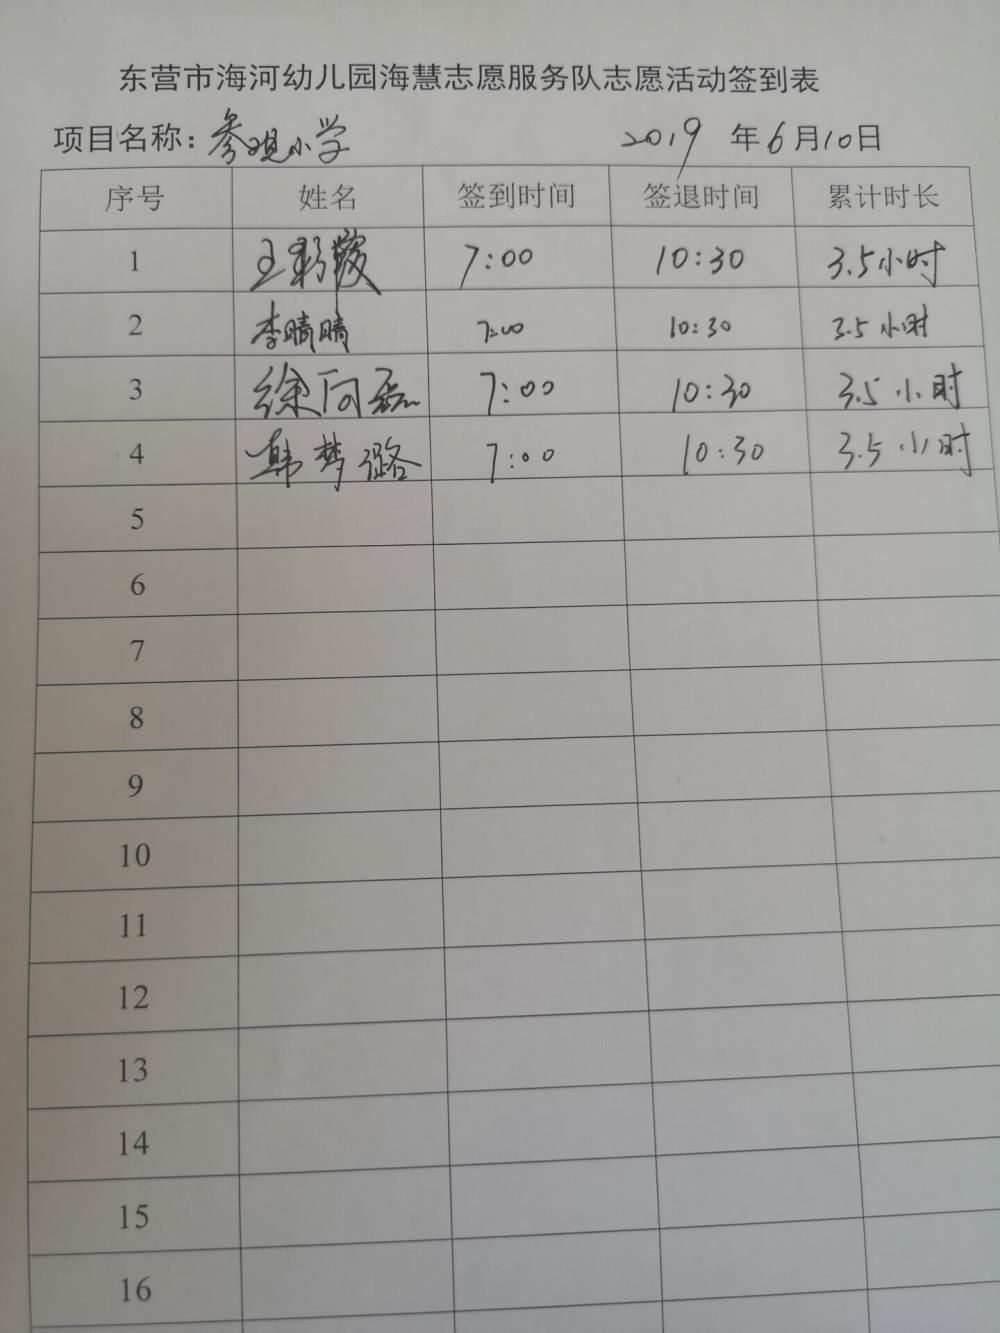 东营市海河幼儿园海慧志愿服务队志愿活动签到表
项目名称：参观小学 2019 年 6 月 10 日
序号 姓名 签到时间 签退时间 累计时长
1 王彩霞 7:00 10:30 3.5小时
2 李晴晴 7:00 10:30 3.5小时
3 徐向磊 7:00 10:30 3.5小时
4 韩梦璐 7:00 10:30 3.5小时
5
6
7
8
9
10
11
12
13
14
15
16